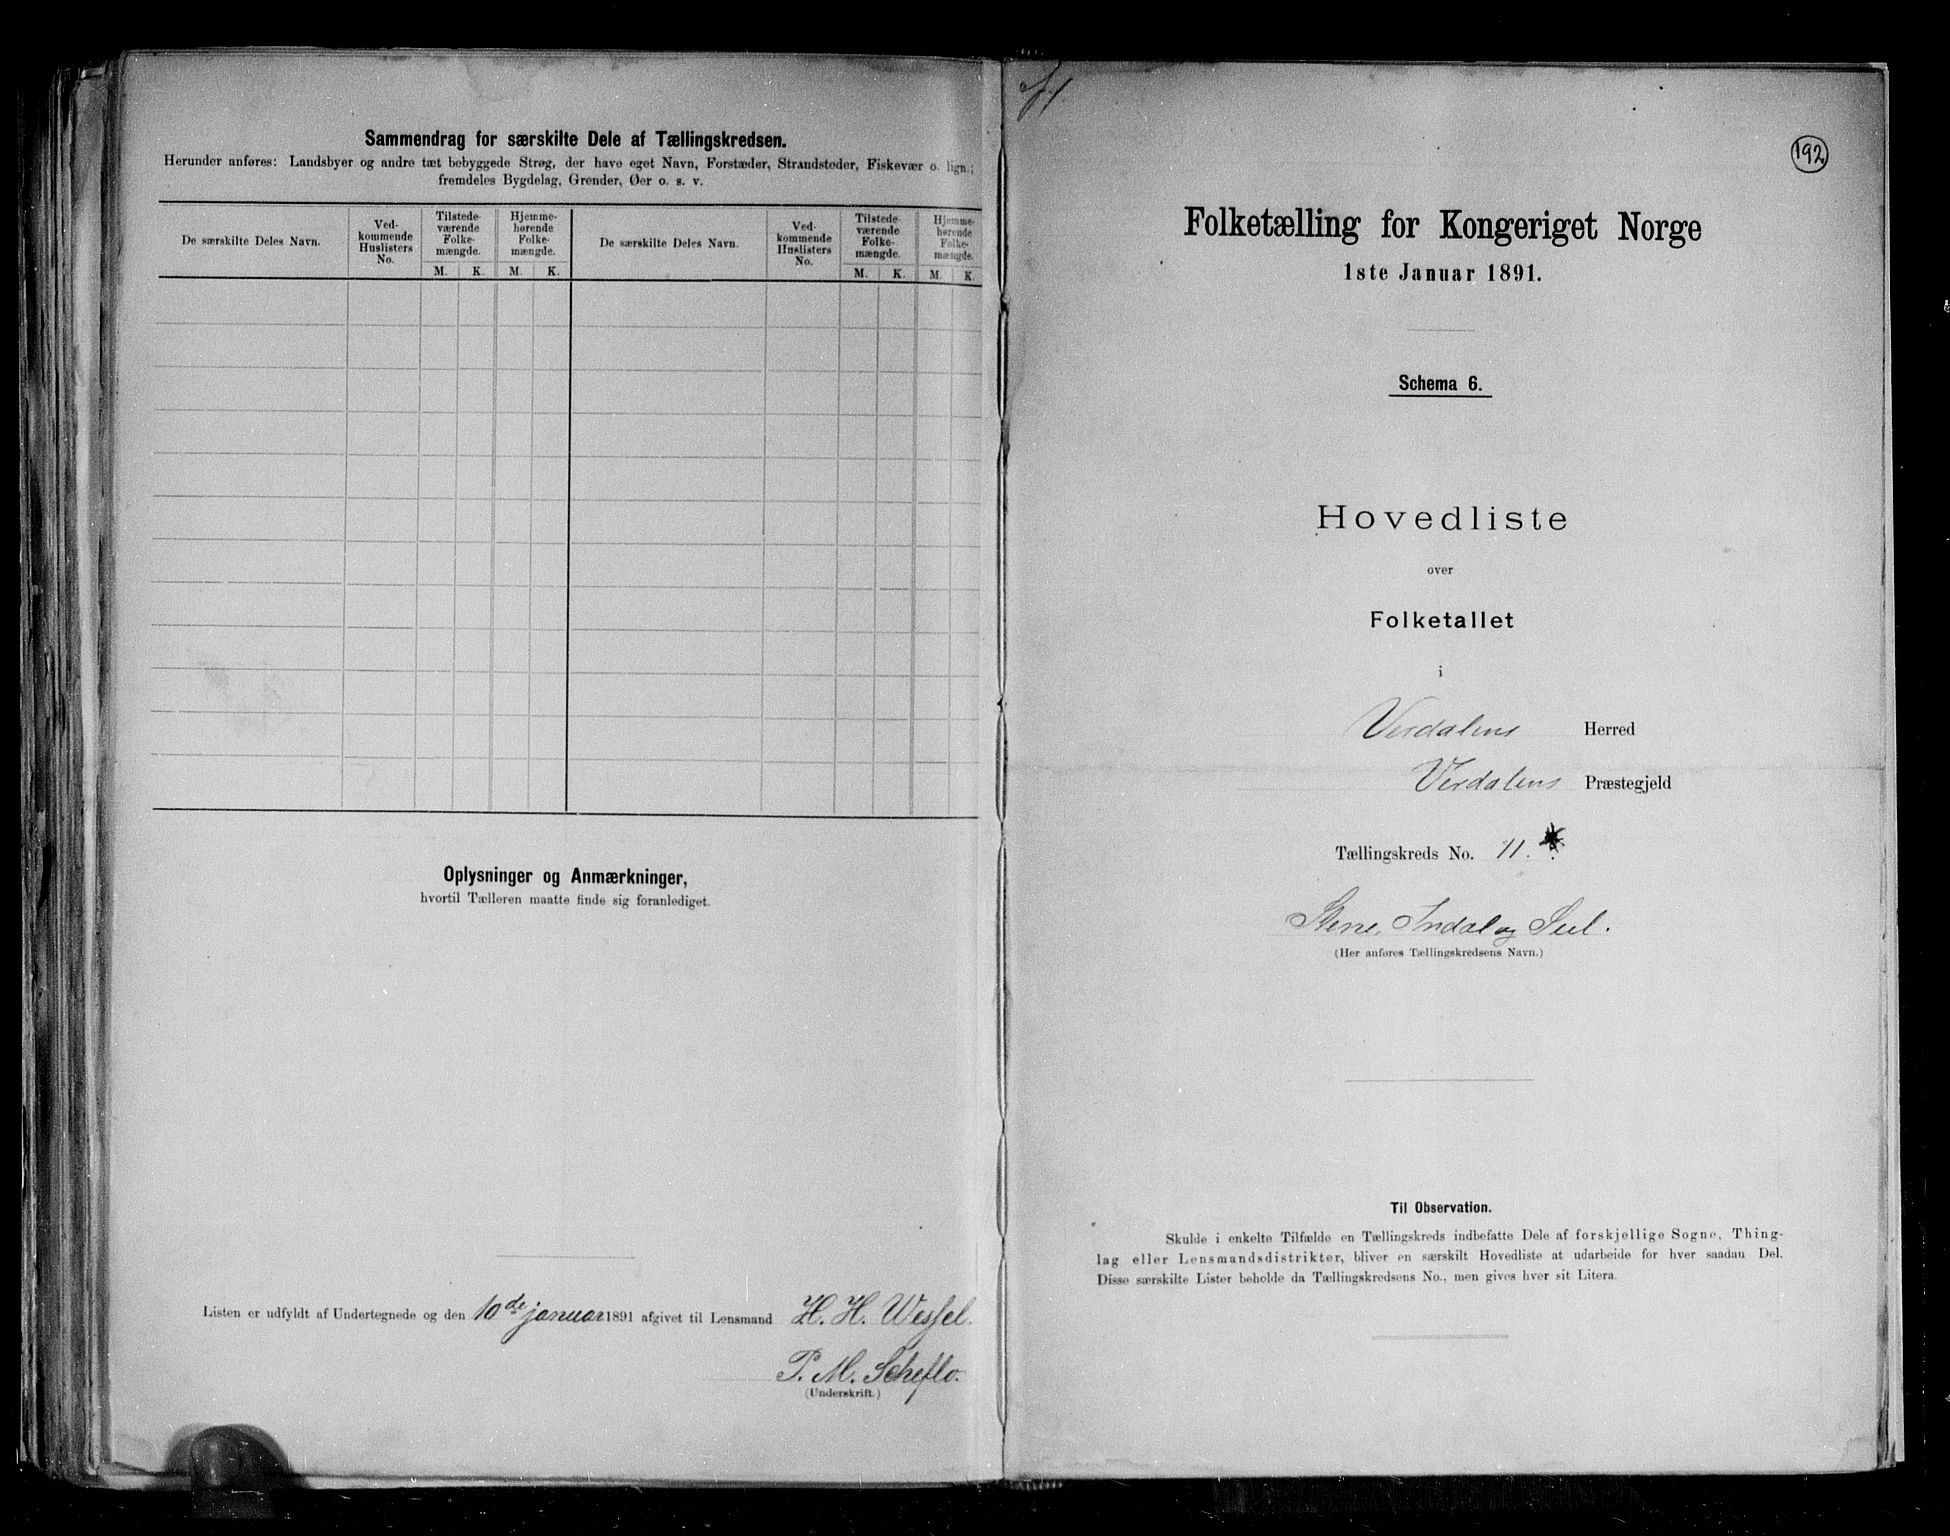 Sammendrag for særskilte Dele af Tællingskredsen.
Herunder anføres: Landsbyer og andre tæt bebyggede Strøg, der have eget Navn, Forstæder, Strandsteder, Fiskevær o. lign.;
fremdeles Bygdelag, Grender, Øer o. s. v.
De særskilte Deles Navn.
Ved-
kommende
Huslisters
No.
Tilstede-
værende
Folke-
mængde.
M. K.
Hjemme-
hørende
Folke-
mængde.
M. K.
De særskilte Deles Navn.
Ved-
kommende
Huslisters
No.
Tilstede-
værende
Folke-
mængde.
M. K.
Hjemme-
hørende
Folke-
mængde.
M. K.
Oplysninger og Anmærkninger,
hvortil Tælleren maatte finde sig foranlediget.
Listen er udfyldt af Undertegnede og den 10de januar 1891 afgivet til Lensmand H. H. Wessel.
P. M. Scheflo.
(Underskrift.)
192
Folketælling for Kongeriget Norge
1ste Januar 1891.
Schema 6.
Hovedliste
over
Folketallet
i
Verdalens Herred
Verdalens Præstegjeld
Tællingskreds No. 11.
Stene, Indal og Sul.
(Her anføres Tællingskredsens Navn.)
Til Observation.
Skulde i enkelte Tilfælde en Tællingskreds indbefatte Dele af forskjellige Sogne, Thing-
lag eller Lensmandsdistrikter, bliver en særskilt Hovedliste at udarbeide for hver saadan Del.
Disse særskilte Lister beholde da Tællingskredsens No., men gives hver sit Litera.